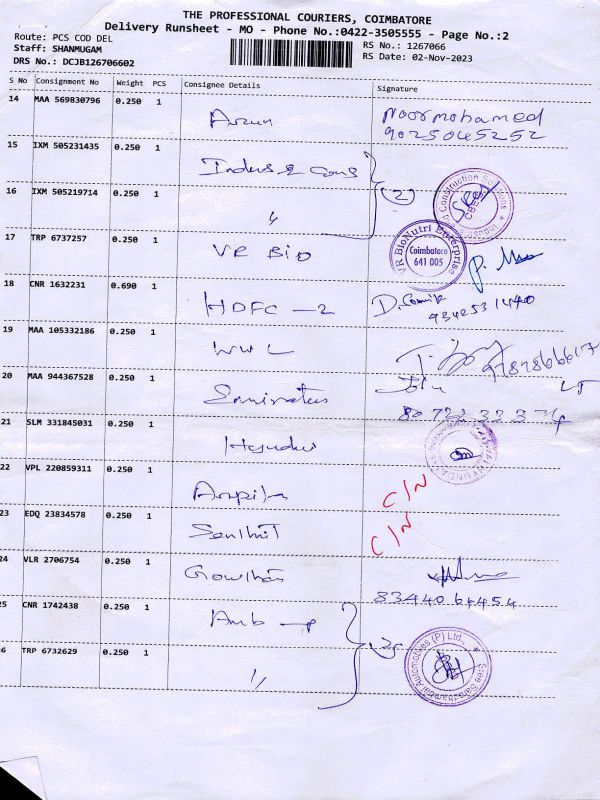 THE PROFESSIONAL COURIERS, COIMBATORE
Delivery Runsheet - MO - Phone No.:0422-3505555 - Page No.:2
Route: PCS COD DEL
Staff: SHANMUGAM
DRS No.: DCJB126706602
RS No.: 1267066
RS Date: 02-Nov-2023
S No Consignment No Weight PCS Consignee Details Signature
14 MAA 569830796 0.250 1 Arun Noormohamed
9025045252
15 IXM 505231435 0.250 1 Indus & Cons
16 IXM 505219714 0.250 1 " (2)
17 TRP 6737257 0.250 1 VR BIO VR BioNutri Enterprise Coimbatore 641 005
18 CNR 1632231 0.690 1 HDFC - 2 D.
9342531440
19 MAA 105332186 0.250 1 WWL
20 MAA 944367528 0.250 1
21 SLM 331845031 0.250 1
22 VPL 220859311 0.250 1 C/N
23 EDQ 23834578 0.250 1 Senthil C/N
24 VLR 2706754 0.250 1 Gowtham
83440 64454
25 CNR 1742438 0.250 1 Amb - P
26 TRP 6732629 0.250 1 "